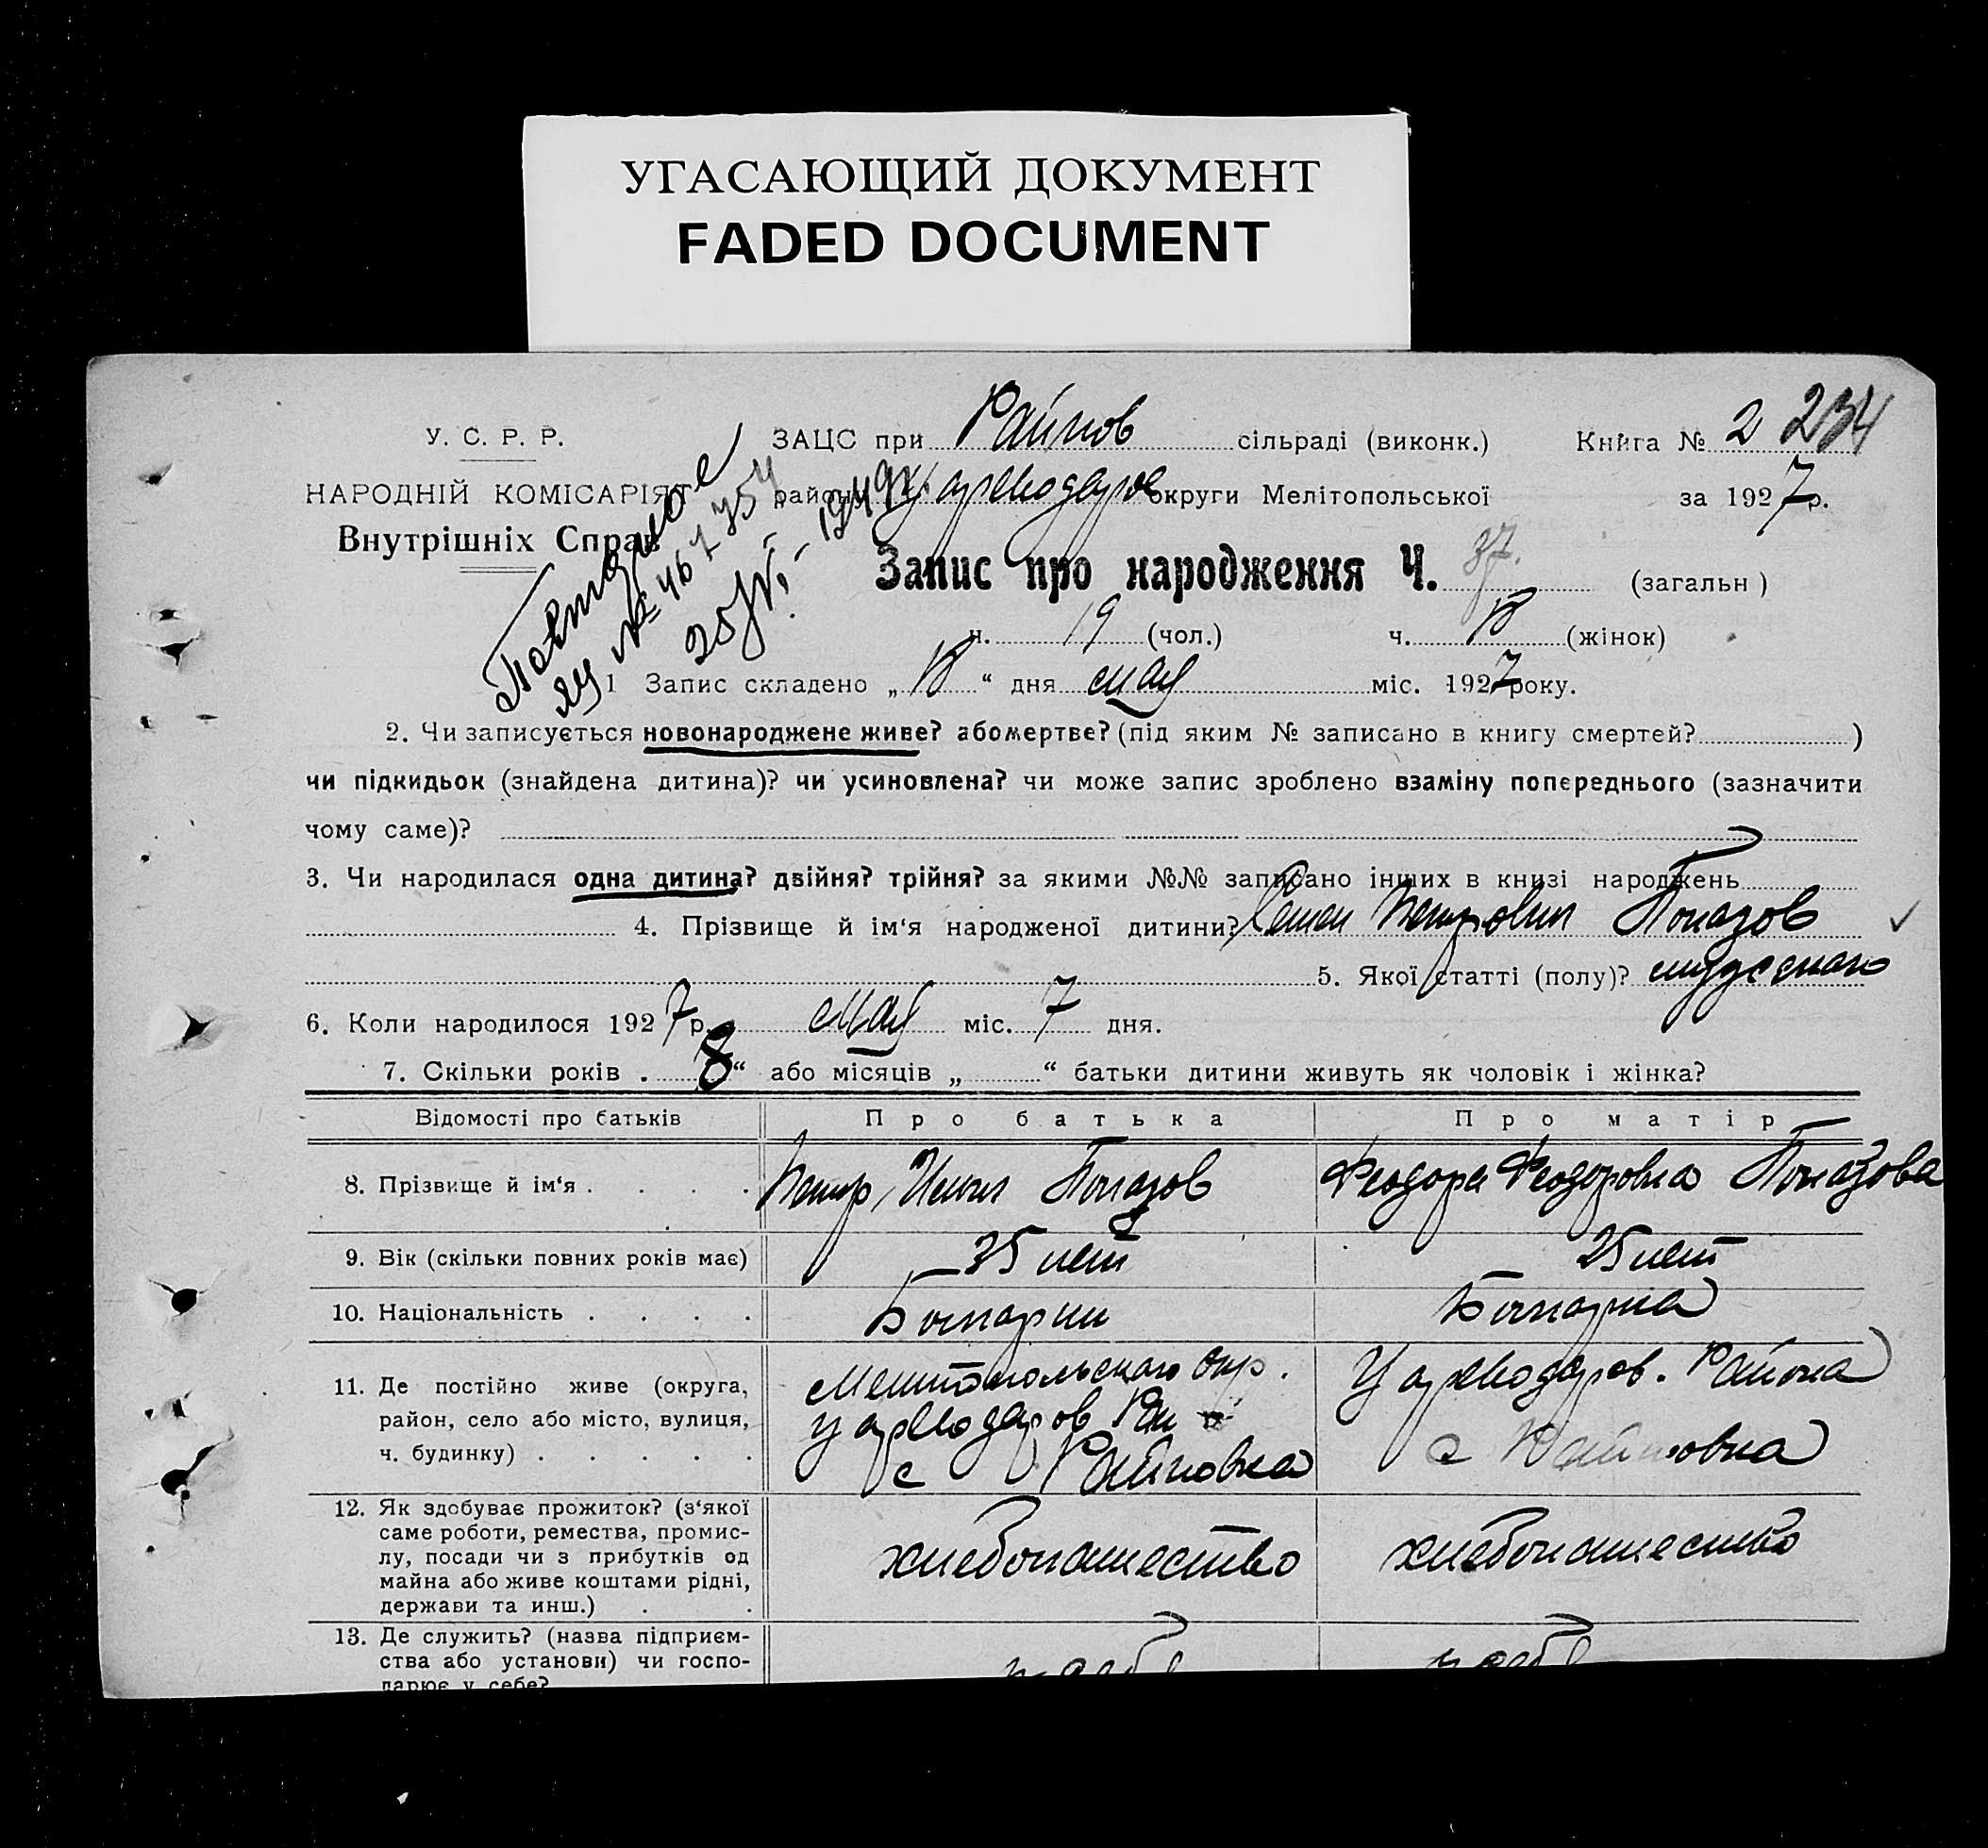 УГАСАЮЩИЙ ДОКУМЕНТ
FADED DOCUMENT
У. С. Р. Р.
НАРОДНІЙ КОМІСАРІЯТ
Внутрішніх Справ
Повторное
25/VI - 1949 г.
ЗАЦС при Райнов сільраді (виконк.) Книга № 2 234
району Цареводаров округи Мелітопольської за 1927 р.
Запис про народження Ч. 37. (загальн)
ч. 19 (чол.) ч. 18 (жінок)
1 Запис складено „18“ дня мая міс. 1927 року.
2. Чи записується новонароджене живе? або мертве? (під яким № записано в книгу смертей? )
чи підкидьок (знайдена дитина)? чи усиновлена? чи може запис зроблено взаміну попереднього (зазначити
чому саме)?
3. Чи народилася одна дитина? двійня? трійня? за якими №№ записано інших в книзі народжень
4. Прізвище й ім‘я народженої дитини? Семен Петрович Попазов
5. Якої статті (полу)? мужского
6. Коли народилося 1927 р. мая міс. 7 дня.
7. Скільки років . 8“ або місяців „ “ батьки дитини живуть як чоловік і жінка?
Відомості про батьків Про батька Про матір
8. Прізвище й ім‘я . . . . Петр Ильич Попазов Феодора Феодоровна Попазова
9. Вік (скільки повних років має) 35 лет 25 лет
10. Національність . . . . Болгарин Болгарка
11. Де постійно живе (округа,
район, село або місто, вулиця,
ч. будинку) . . . . .
Мелитопольского окр.
Цареводаров Рай
с Райновка
Цареводаров. Района
с Райновка
12. Як здобуває прожиток? (з‘якої
саме роботи, ремества, промис-
лу, посади чи з прибутків од
майна або живе коштами рідні,
держави та инш.) . .
хлебопашество хлебопашество
13. Де служить? (назва підприєм-
ства або установи) чи госпо-
дарює у себе?